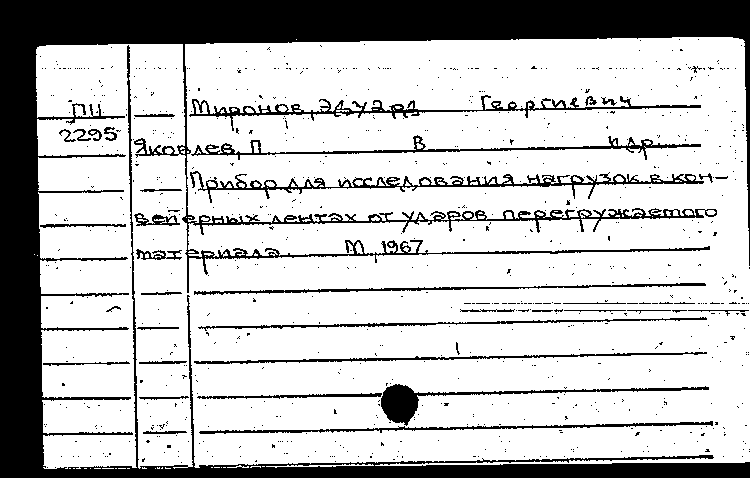 ПЦ Миронов, Эдуард Георгиевич
2295 Яковлев, П В и др.
Прибор для исследования нагрузок в кон-
вейерных лентах от ударов перегружаемого
материала. М, 1967.